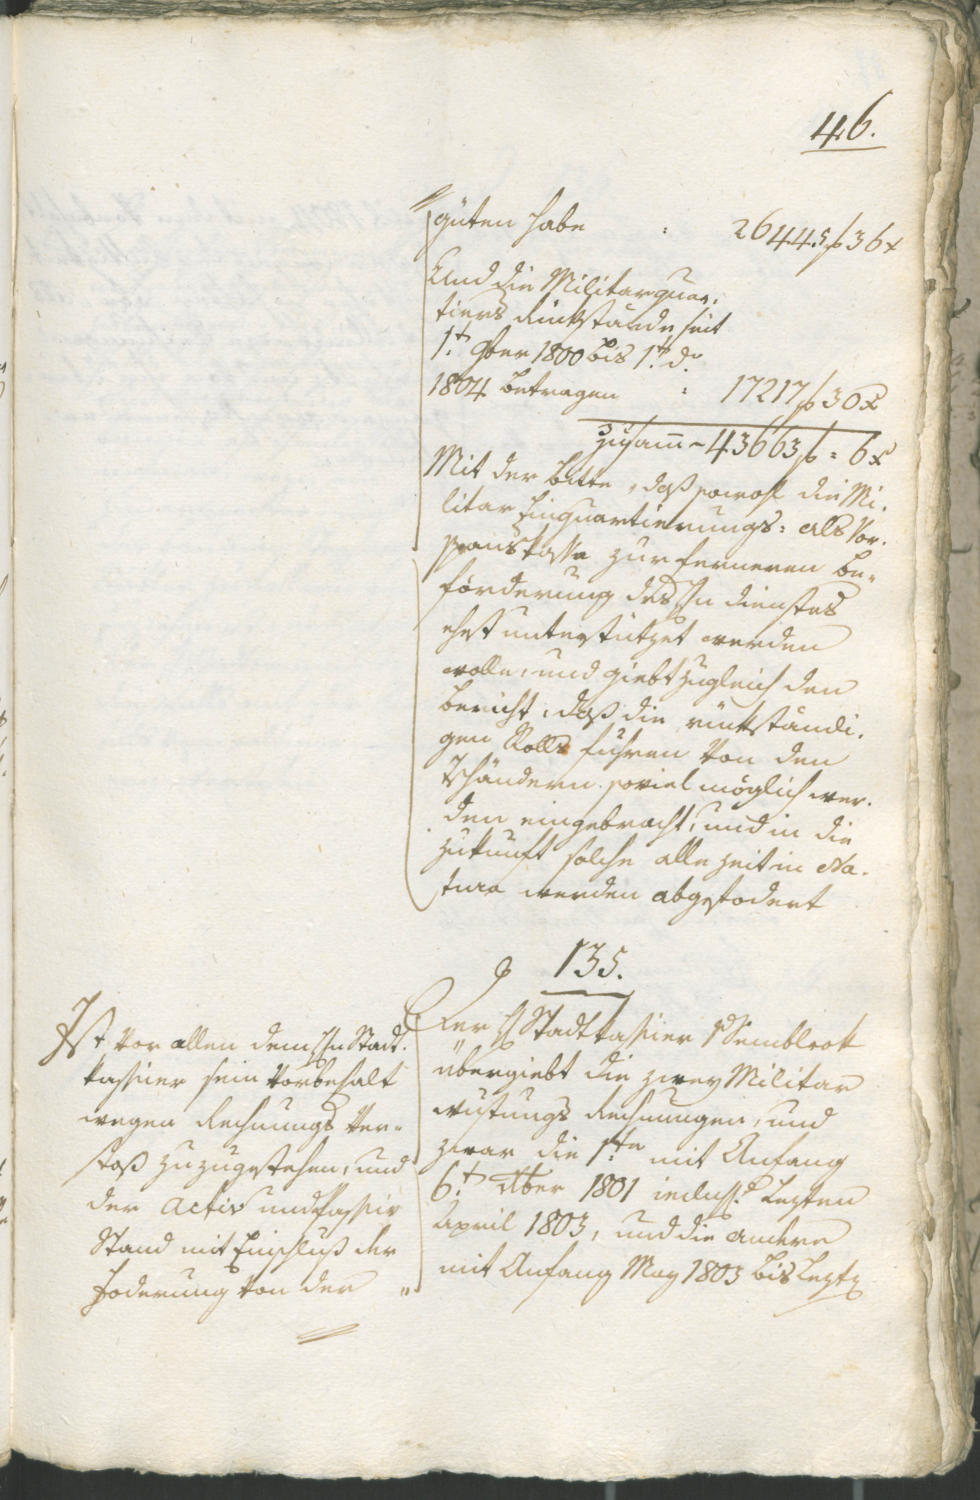 46.
guten habe : 26445 f 36 x
Und die Militarquar-
tiers Rückstände seit
1t. 9ber 1800 bis 1t. d.
1804 betragen : 17217 f 30 x
zusam̅ - 43663 f = 6 x
Mit der bitte, daß sowohl die Mi-
litar Einquartierungs: als Vor-
spanskasse zur ferneren be-
förderung des H. dienstes
ehest unterstützet werden
wolle, und giebt zugleich den
bericht, daß die rückständi-
gen führen von den
Ständern soviel möglich wer-
den eingebracht, und in die
Zukunft solche alle zeit in Na-
tura werden abgefodert
135.
Der H. Stadtkassier Semblrok
übergiebt die zwey Militar
Rechnungen, und
zwar die 1te mit Anfang
6t. Xber 1801 inclus. lezten
April 1803, und die andere
mit Anfang May 1803 bis lezt
Ist vor allen dem H. Stadt-
kassier sein Vorbehalt
wegen Rechnungs Ver-
stoß zuzugestehen, und
der Activ und Passiv
Stand mit Einschluß der
Foderung von der "